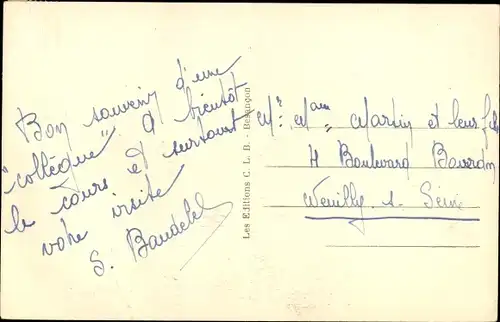 Bon souvenir d'une
"collègue". A bientôt
le cours et surtout
votre visite
S. Baudelet
Les Editions C. L. B. - Besançon
Mr Mme Martin et leur fils
4 Boulevard Bourdon
Neuilly s. Seine